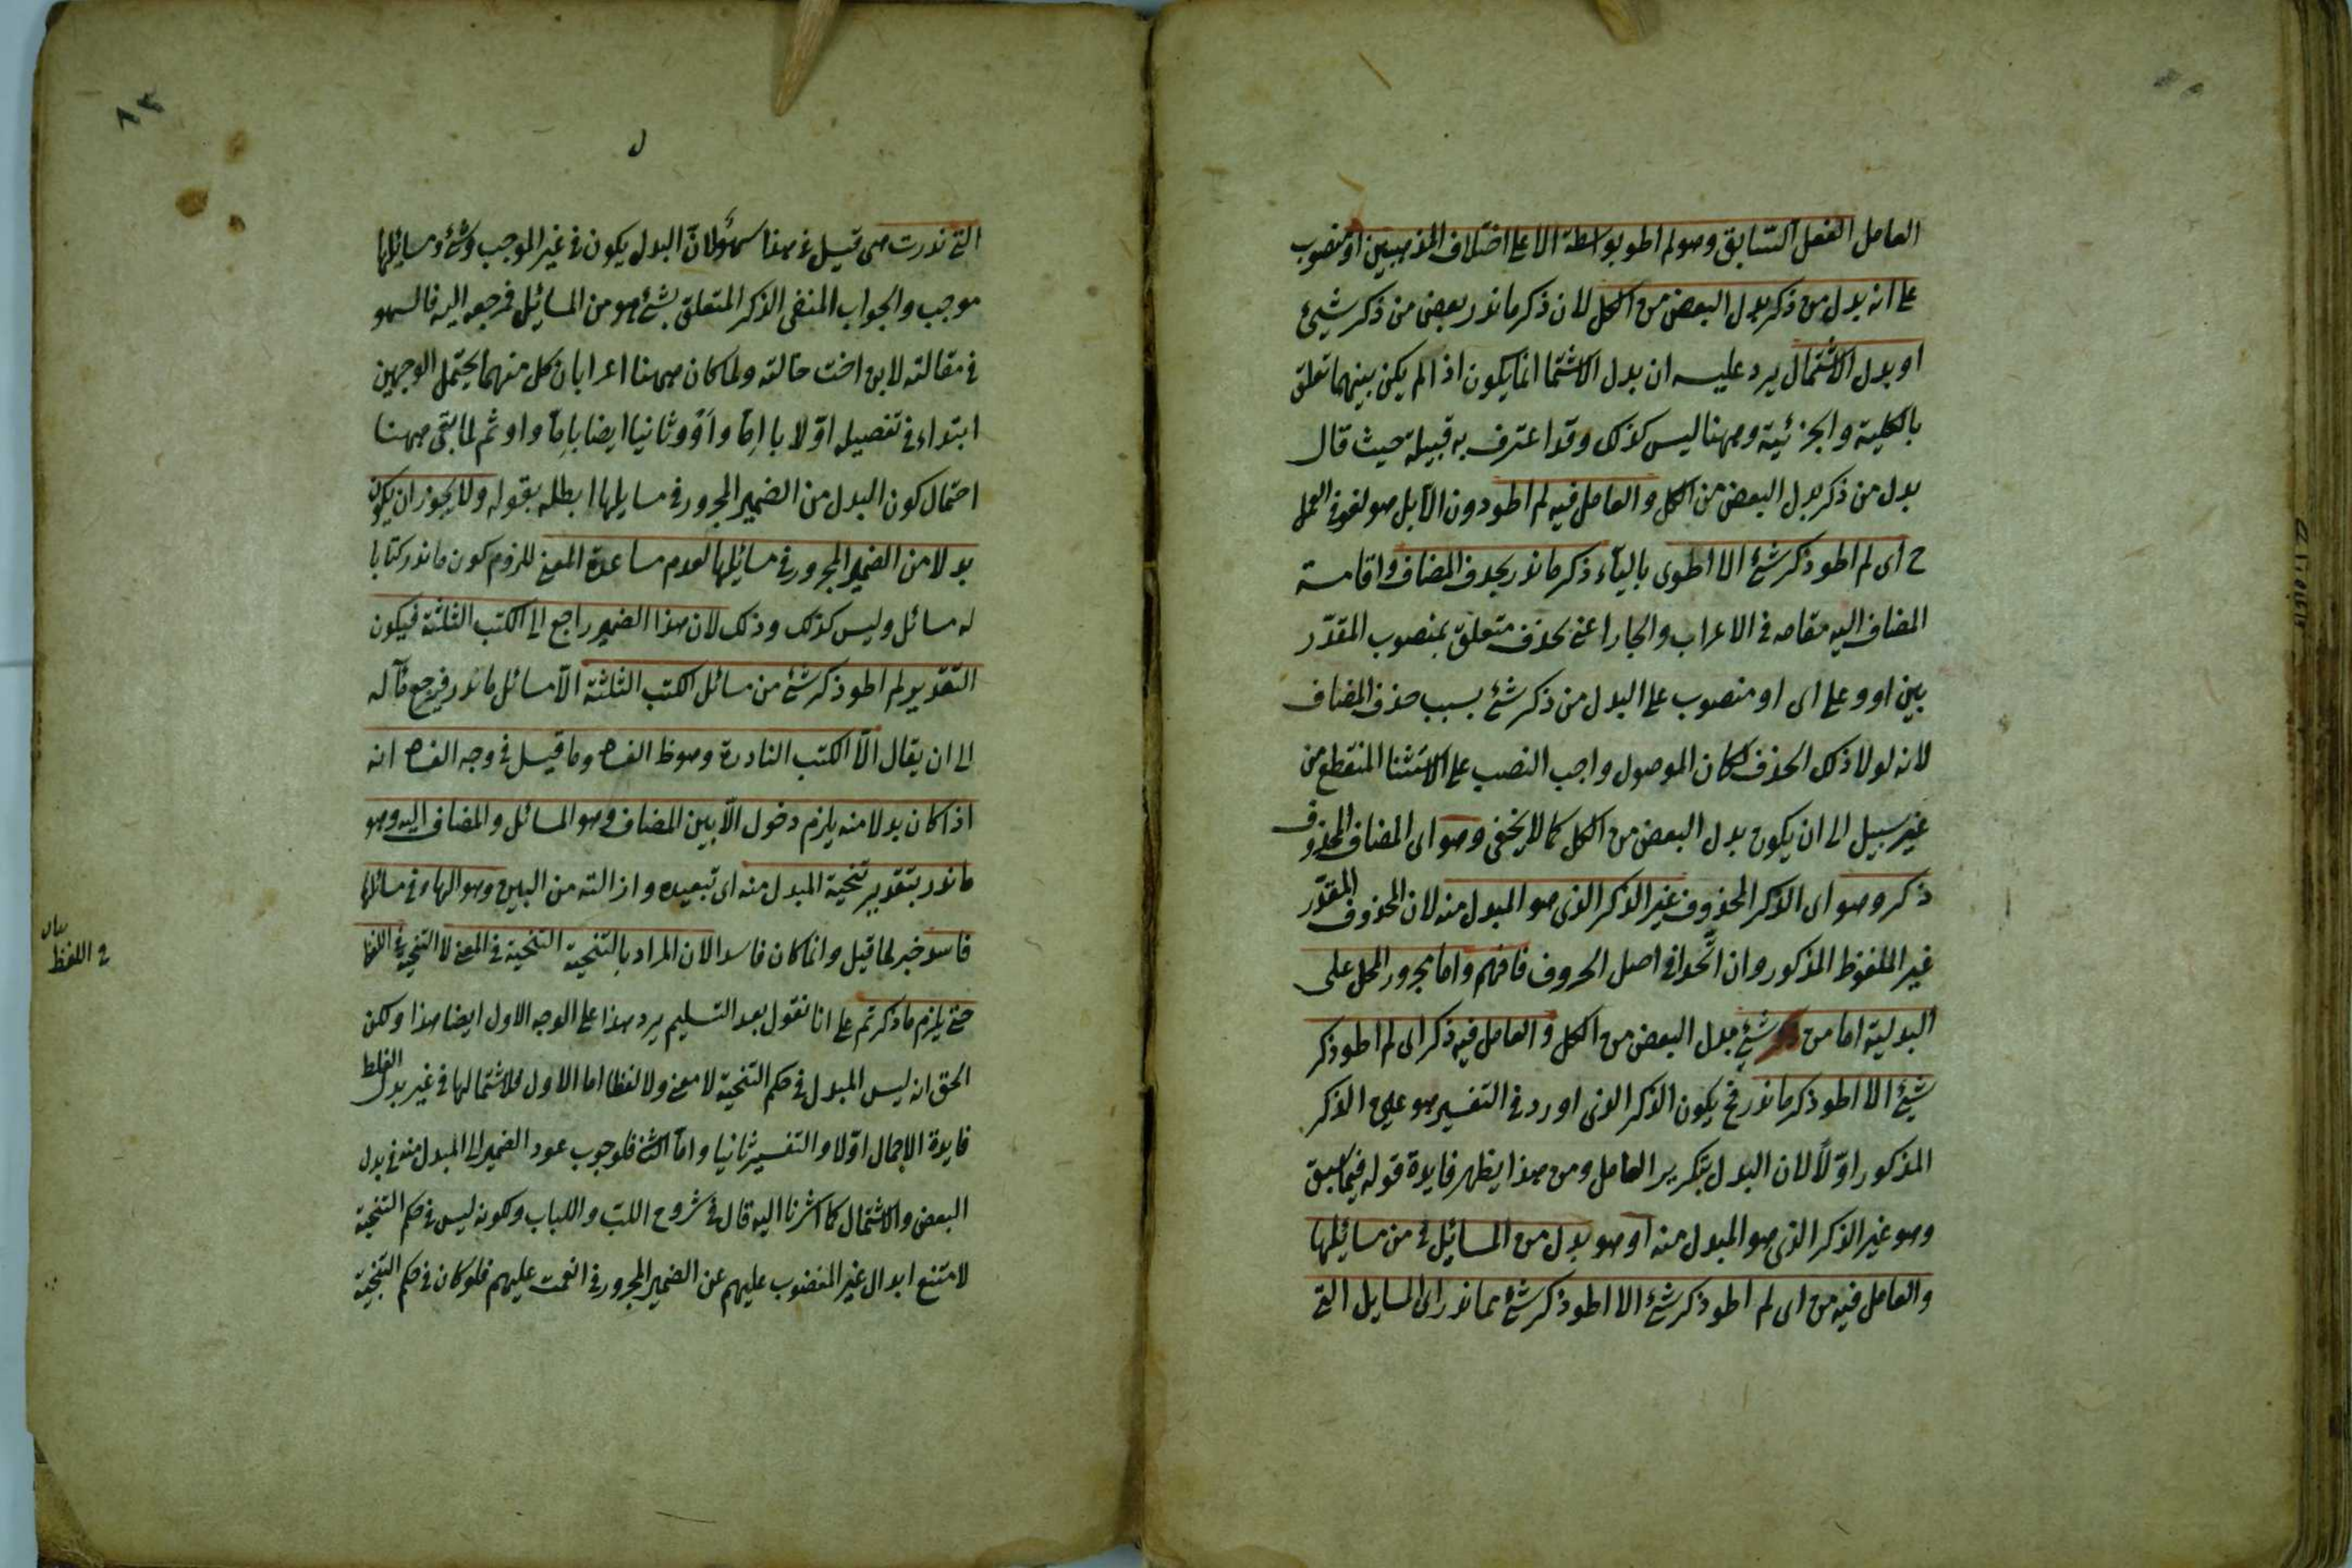 العامل الفعل السابق وهو لم اطو بواسطة الا على اختلاف المذهبين او منصوب
على انه بدل من ذكر بدل البعض من الكل لان ذكر ما ندر بعض من ذكر شيئ
او بدل الاشتمال يرد عليه ان بدل الاشتما انما يكون اذا لم يكن بينهما تعلق
بالكلية والجزئية وههنا ليس كذلك وقد اعترف به قبيله حيث قال
بدل من ذكر بدل البعض من الكل والعامل فيه لم اطو دون الا بل هو لغو في العمل
ح اى لم اطو ذكر شئ الا اطوى بالياء ذكر ما ندر بحذف المضاف واقامة
المضاف اليه مقامه في الاعراب والجار اعنى بحذف متعلق بمنصوب المقدّر
بين او وعلى اى او منصوب على البدل من ذكر شئ بسبب حذف المضاف
لانه لولا ذلك الحذف لكان الموصول واجب النصب على الاستثنا المنقطع من
غير سبيل الى ان يكون بدل البعض من الكل كما لا يخفى وهو اى المضاف المحذوف
ذكر وهو اى الذكر المحذوف غير الذكر الذى هو المبدل منه لان المحذوف المقدّر
غير الملفوظ المذكور وان اتّحدا في اصل الحروف فافهم واما مجرور المحل على
البدلية اما من شئ بدل البعض من الكل والعامل فيه ذكر اى لم اطو ذكر
شيئ الا اطو ذكر ما ندر فح يكون الذكر الذى اورد في التفسير هو عين الذكر
المذكور اوّلاً لان البدل بتكرير العامل ومن هذا يظهر فايدة قوله فيما سبق
وهو غير الذكر الذى هو المبدل منه او هو بدل من المسائيل في من مسائيلها
والعامل فيه من اى لم اطو ذكر شئ الا اطو ذكر شئ مما ندر اى المسايل التى
التى ندرت هى قيل في هذا سهو لانّ البدل يكون في غير الموجب وشئ ومسائيلها
موجب والجواب المنفى الذكر المتعلق بشئ هو من المسائيل فمرجعه اليه فالسهو
في مقالته لابن اخت خالته ولما كان ههنا اعرابان كل منهما يحتمل الوجهين
ابتداء في تفصيله اوّلا باِمّا واَوْ وثانيا ايضا باِمّا واو ثم لما بقى ههنا
احتمال كون البدل من الضمير المجرور في مسايلها ابطله بقوله ولا يجوز ان يكون
بدلا من الضمير المجرور في مسائيلها لعدم مساعدة المعنى للزوم كون ما ندر كتابا
له مسائل وليس كذلك وذلك لان هذا الضمير راجع الى الكتب الثلثة فيكون
التقدير لم اطو ذكر شئ من مسائل الكتب الثلثة الا مسائل ما ندر فيرجع مآله
الى ان يقال الّا الكتب النادرة وهو ظ الفسا وما قيل في وجه الفسا انه
اذا كان بدلا منه يلزم دخول الّا بين المضاف وهو المسائل والمضاف اليه وهو
ما ندر بتقدير تنحية المبدل منه اى تبعيده وازالته من البين وهو الهاء في مسائلها
فاسد خبر لما قيل وانما كان فاسدا لان المراد بالتنحية التنحية في المعنى لا التنحية في اللفظ
حتى يلزم ما ذكرتم على انا نقول بعد التسليم يرد هذا على الوجه الاول ايضا هذا ولكن
الحق انه ليس المبدل في حكم التنحية لا معنى ولا لفظا اما الاول فلاشتمالها في غير بدل الغلط
فايدة الاجمال اوّلا والتفسير ثانيا وامّا الثّانى فلوجوب عود الضمير الى المبدل منه في بدل
البعض والاشتمال كما اشرنا اليه قال في شروح اللبّ واللباب وكونه ليس في حكم التنحية
لامتنع ابدال غير المغضوب عليهم عن الضمير المجرور في انعمت عليهم فلو كان في حكم التنحية
في اللفظ
٨٣